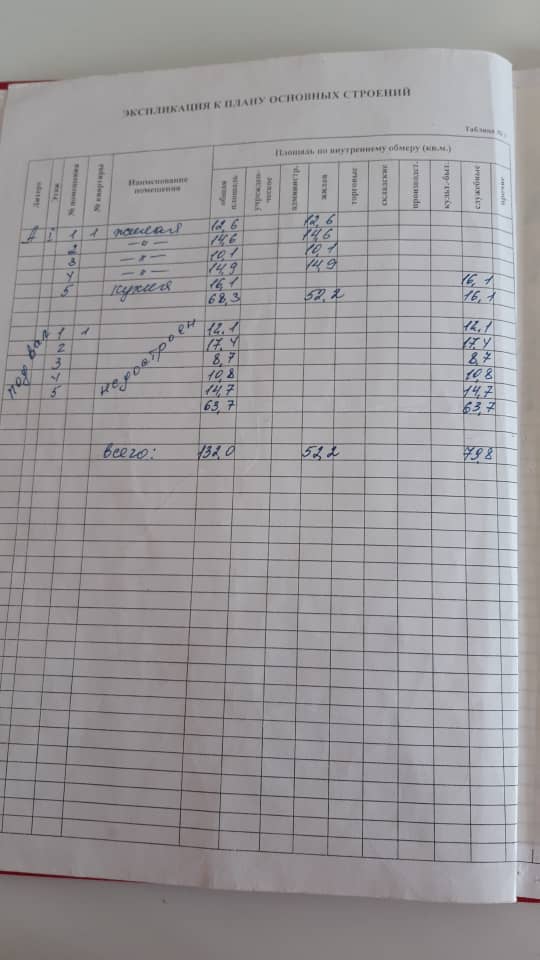 ЭКСПЛИКАЦИЯ К ПЛАНУ ОСНОВНЫХ СТРОЕНИЙ
Таблица №
Литера Этаж № помещения № квартиры Наименование помещения Площадь по внутреннему обмеру (кв.м.)
общая площадь учрежденческое администр. жилая торговые складские производст. культ.-быт. служебные прочие
А 1 1 жилая 12,6 12,6
2 —"— 14,6 14,6
3 —"— 10,1 10,1
4 —"— 14,9 14,9
5 кухня 16,1 16,1
68,3 52,2 16,1
подвал недостроен
1 1 12,1 12,1
2 17,4 17,4
3 8,7 8,7
4 10,8 10,8
5 14,7 14,7
63,7 63,7
всего: 132,0 52,2 79,8